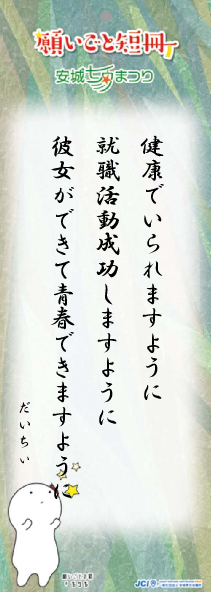 願いごと短冊
安城七夕まつり
健康でいられますように
就職活動成功しますように
彼女ができて青春できますように
だいちぃ
JCI